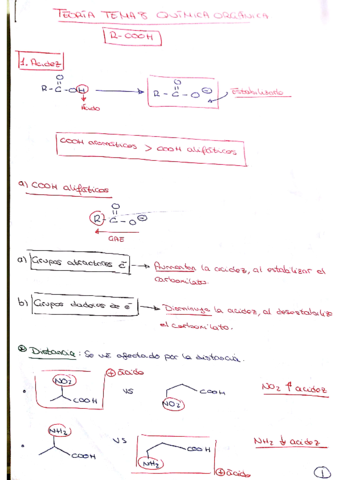 TEORÍA TEMA 8 QUÍMICA ORGÁNICA
R-COOH
1. Acidez
O
R-C-OH
O
R-C-O⊖
Estabilizado
Ácido
COOH aromáticos > COOH alifáticos
a) COOH alifáticos
O
R-C-O⊖
a) Grupos atractores e⁻ → Aumentan la acidez, al estabilizar el
carboxilato.
b) Grupos dadores de e⁻ → Disminuye la acidez, al desestabilizar
el carboxilato.
Distancia: Se ve afectado por la distancia.
⊕ ácido
NO2
COOH
VS
COOH
NO2
NO2 ↑ acidez
NH2
COOH
VS
COOH
NH2
NH2 ↓ acidez
⊕ ácido
1